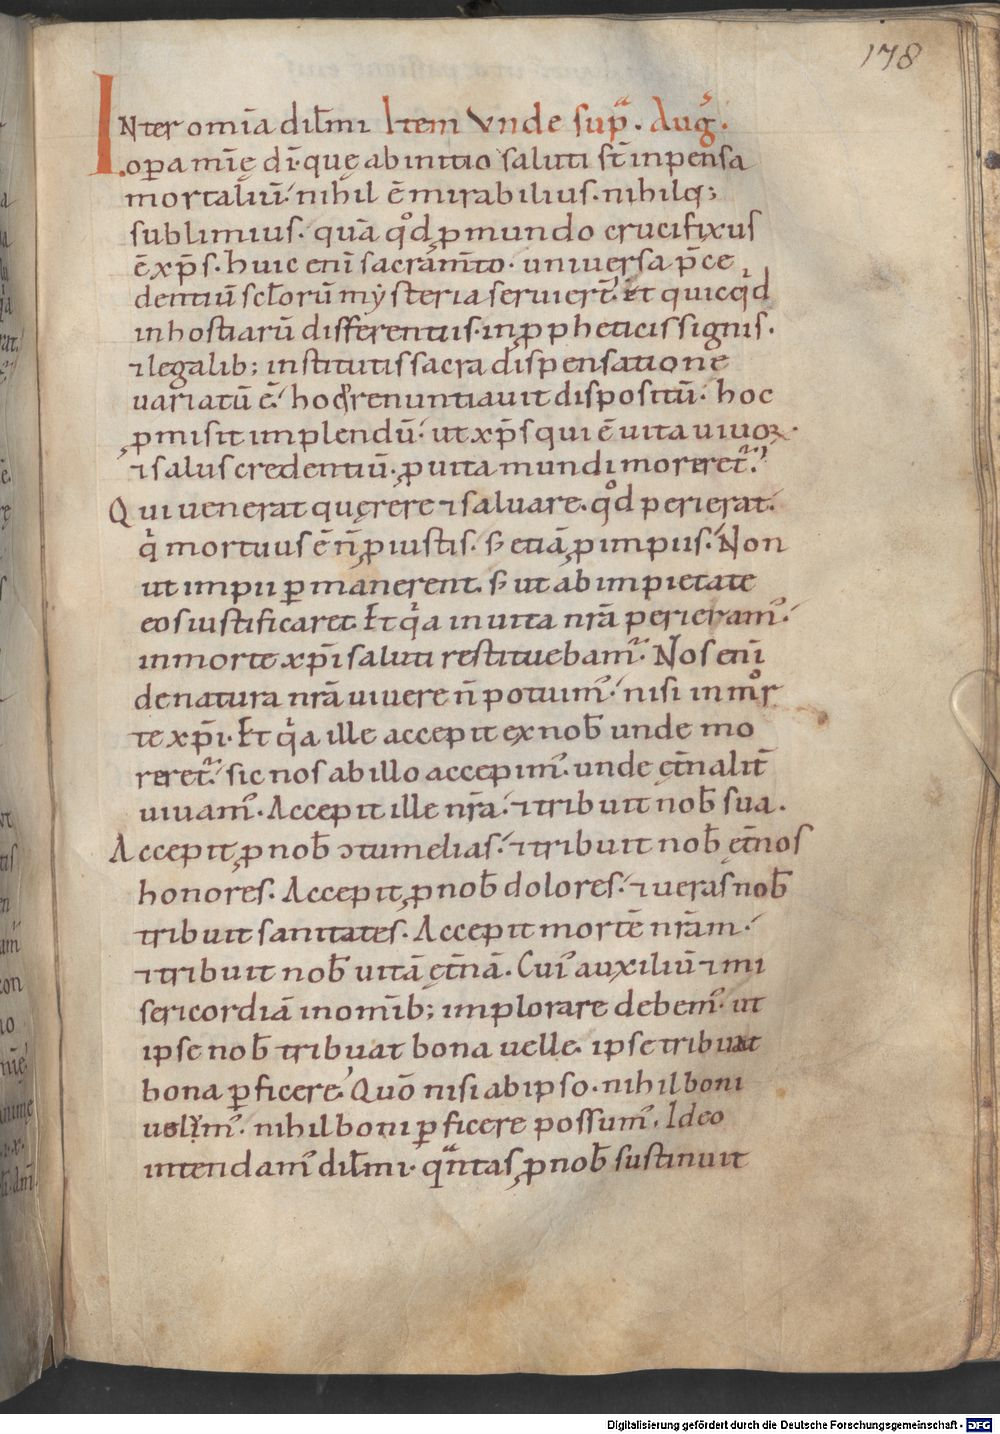 178
INter om̄ia dil̄mi Item Vnde sup̄. Aug.
oꝑa mīę dī. quę ab initio saluti st̄ inpensa
mortaliū. nihil ē mirabilius. nihilq;
sublimius. quā qd ꝓ mundo crucifixus
ē xp̄s. huic enī sacram̄to. uniuersa p̄ce
dentiū sc̄lorū mẏsteria seruier̄t. Et quicqid
in hostiarū differentiis. in ꝓpheticis signis.
⁊ legalib; institutis sacra dispensatione
uariatū ē. hoc p̄renuntiauit dispositū. hoc
ꝓmisit implendū. ut xp̄s qui ē uita uiuoꝝ.
⁊ salus credentiū. ꝓ uita mundi moreret᷑.
Qui uenerat quęrere ⁊ saluare. qd perierat.
qi mortuus ē n̄ ꝓ iustis. s; etiā ꝓ impiis. Non
ut impii ꝑmanerent. s; ut ab impietate
eos iustificaret. Et qia in uita nr̄a perieram᷒.
in morte xp̄i saluti restituebam᷒. Nos enī
de natura nr̄a uiuere n̄ potuim᷒. nisi in mor
te xp̄i. Et qia ille accepit ex nob̄ unde mo
reret᷑. sic nos ab illo accepim᷒. unde ęt̄nalit̄
uiuam᷒. Accepit ille nr̄a. ⁊ tribuit nob̄ sua.
Accepit ꝓ nob̄ ↄtumelias. ⁊ tribuit nob̄ ęt̄nos
honores. Accepit ꝓ nob̄ dolores. ⁊ ueras nob̄
tribuit sanitates. Accepit mortē nr̄am.
⁊ tribuit nob̄ uitā ęt̄nā. Cui᷒ auxiliū ⁊ mi
sericordiā in om̄ib; implorare debem᷒. ut
ipse nob̄ tribuat bona uelle. ipse tribuat
bona ꝑficere. Quō nisi ab ipso. nihil boni
uolum᷒. nihil boni ꝑficere possum᷒. Ideo
intendam᷒ dil̄mi. qantas ꝓ nob̄ sustinuit
Digitalisierung gefördert durch die Deutsche Forschungsgemeinschaft - DFG